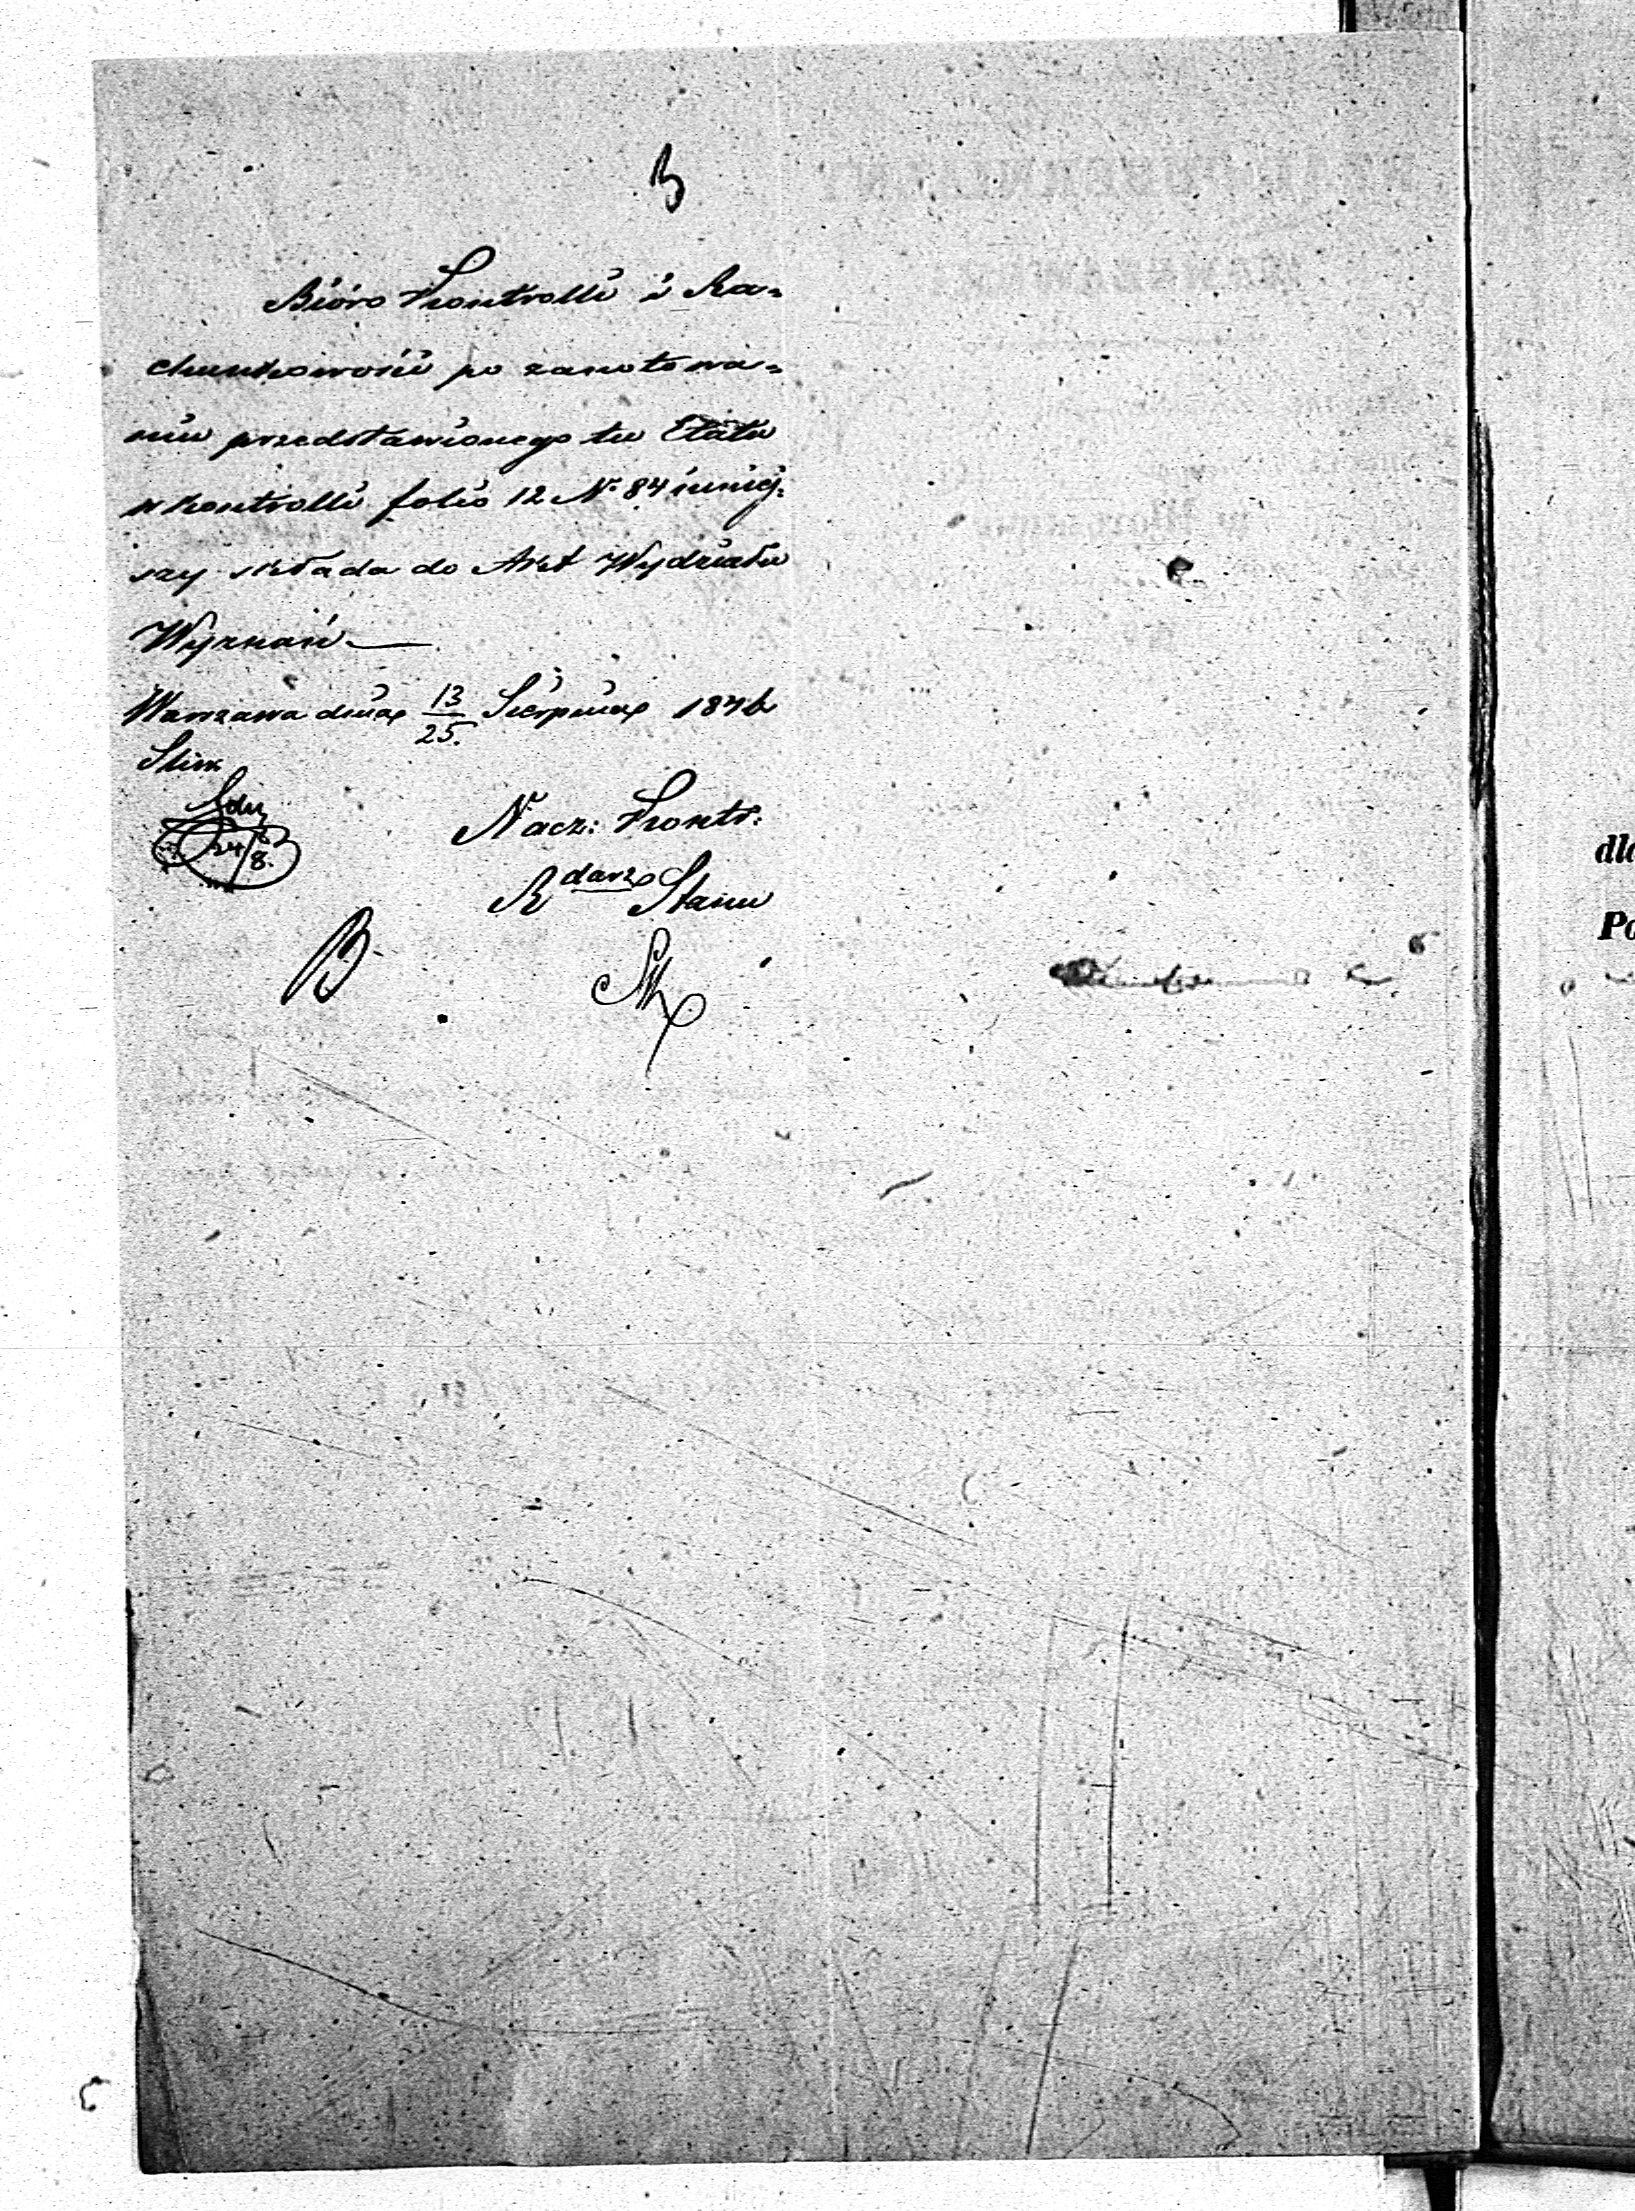 B
Bióro Kontrolli i Ra-
chunkowości po zanotowa-
niu przedstawionego tu Etatu
w kontrolli folio 12 N° 84 niniej-
szy składa do Akt Wydziału
Wyznań —
Warszawa dnia 13/25. Sierpnia 1846
24/8.
Nacz: Kontr:
R darz Stanu
B
dla
Po